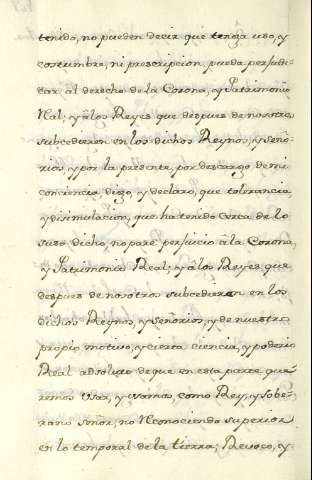 tenido, no pueden decir que tenga uso, y
costumbre, ni prescripcion, pueda perjudi=
car al derecho de la Corona, y Patrimonio
Rl; y â los Reyes que despues de nosotros
subcedieren en los dichos Reynos, y Seño=
rios, y por la presente, por descargo de mi
conciencia digo, y declaro, que tolerancia
y disimulacion, que ha tenido cerca de lo
suso dicho, no pare perjucio â la Corona,
y Patrimonio Real; y â los Reyes que
despues de nosotros subcedieren en los
dichos Reynos, y Señorios, y de nuestro
propio motivo, y cierta ciencia, y poderio
Real absoluto de que en esta parte que=
remos Usar, y usamos como Rey, y sobe=
rano Señor, no Reconociendo superior
en lo temporal de la tierra; Revoco, y